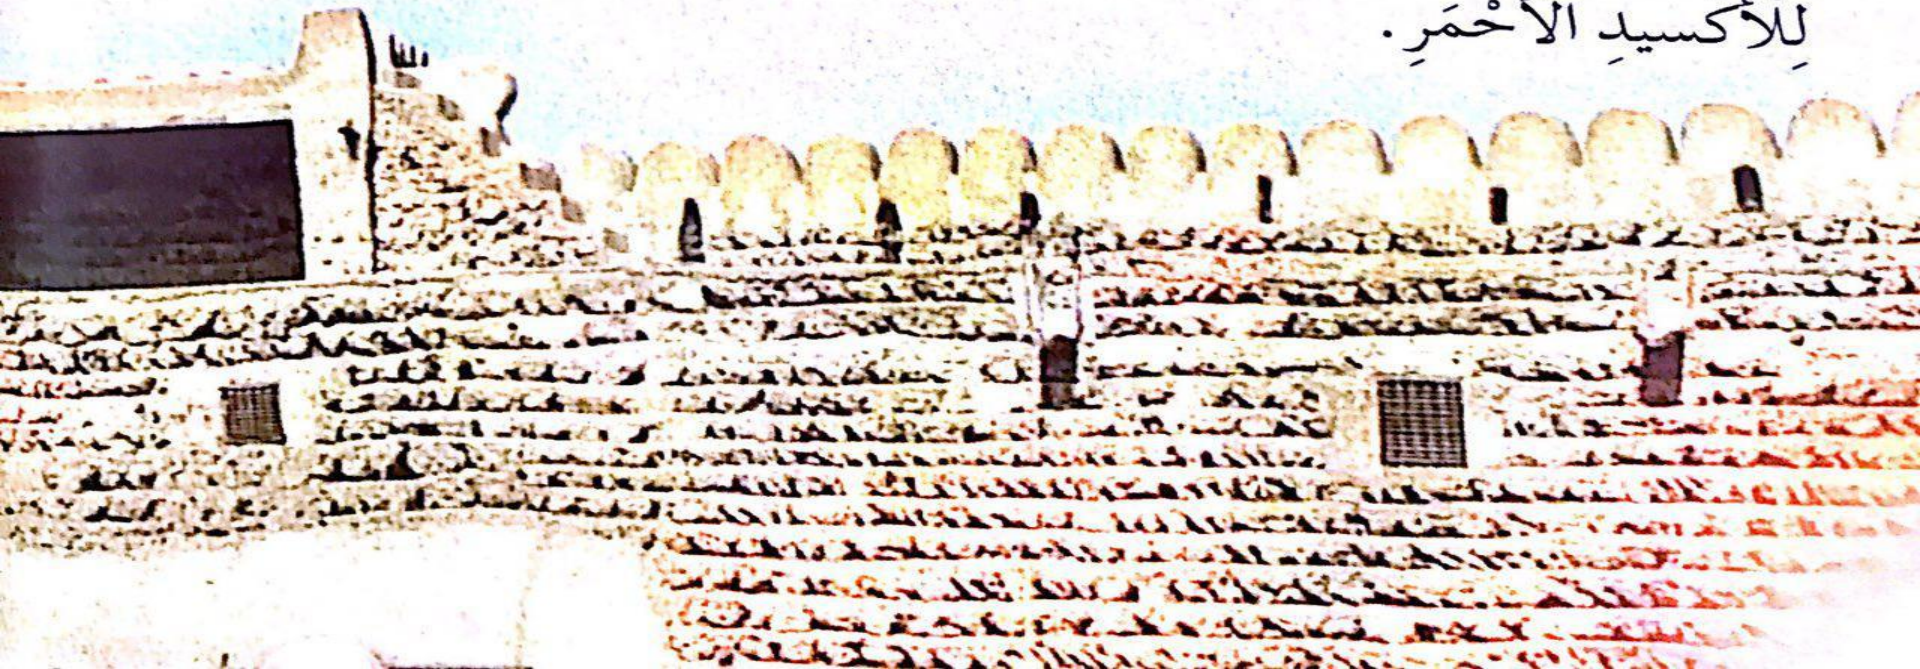 لِلأكسيدِ الأَحْمَرِ.